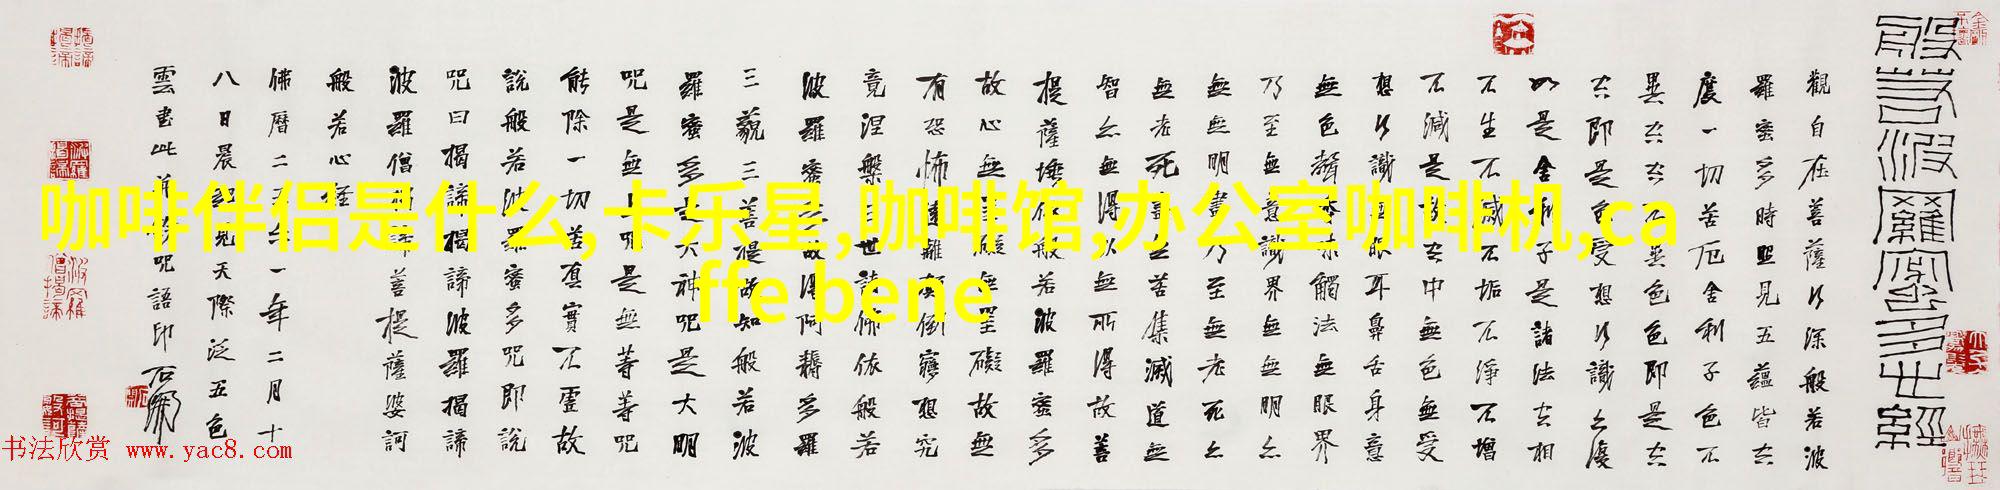 般若波羅蜜多心經
觀自在菩薩行深般若波
羅蜜多時照見五蘊皆空
度一切苦厄舍利子色不
異空空不異色色即是空
空即是色受想行識亦復
如是舍利子是諸法空相
不生不滅不垢不淨不增
不減是故空中無色無受
想行識無眼耳鼻舌身意
無色聲香味觸法無眼界
乃至無意識界無無明亦
無無明盡乃至無老死亦
無老死盡無苦集滅道無
智亦無得以無所得故菩
提薩埵依般若波羅蜜多
故心無罣礙無罣礙故無
有恐怖遠離顛倒夢想究
竟涅槃三世諸佛依般若
波羅蜜多故得阿耨多羅
三藐三菩提故知般若波
羅蜜多是大神咒是大明
咒是無上咒是無等等咒
能除一切苦真實不虛故
說般若波羅蜜多咒即說
咒曰揭諦揭諦波羅揭諦
波羅僧揭諦菩提薩婆訶
般若心經
佛曆二五一年二月十
八日晨起見天際泛五色
雲書此并咒語印
咖啡伴侣是什么,卡乐星,咖啡馆,办公室咖啡机,ca
ffe bene
书法欣赏 www.yac8.com